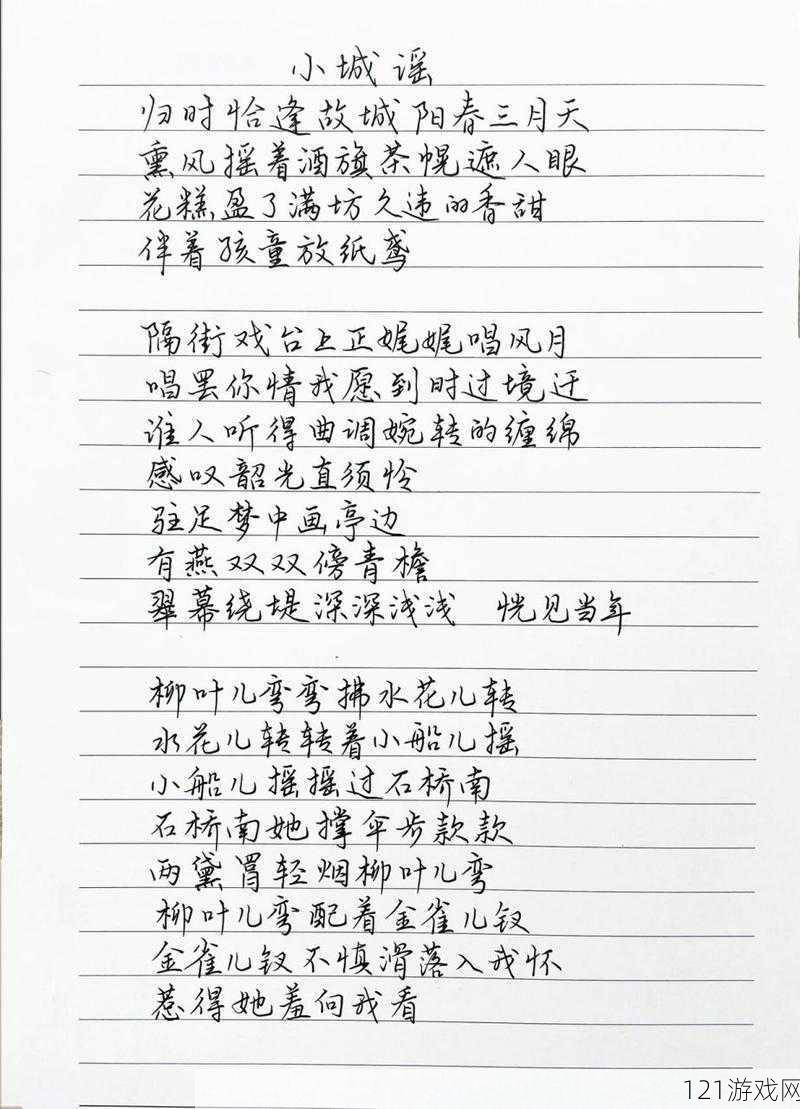 小城谣
归时恰逢故城阳春三月天
熏风摇着酒旗茶幌遮人眼
花糕盈了满坊久违的香甜
伴着孩童放纸鸢
隔街戏台上正娓娓唱风月
唱罢你情我愿到时过境迁
谁人听得曲调婉转的缠绵
感叹韶光直须怜
驻足梦中画亭边
有燕双双傍青檐
翠幕绕堤深深浅浅 恍见当年
柳叶儿弯弯拂水花儿转
水花儿转转着小船儿摇
小船儿摇摇过石桥南
石桥南她撑伞步款款
两黛罥轻烟柳叶儿弯
柳叶儿弯配着金雀儿钗
金雀儿钗不慎滑落入我怀
惹得她羞向我看
121游戏网